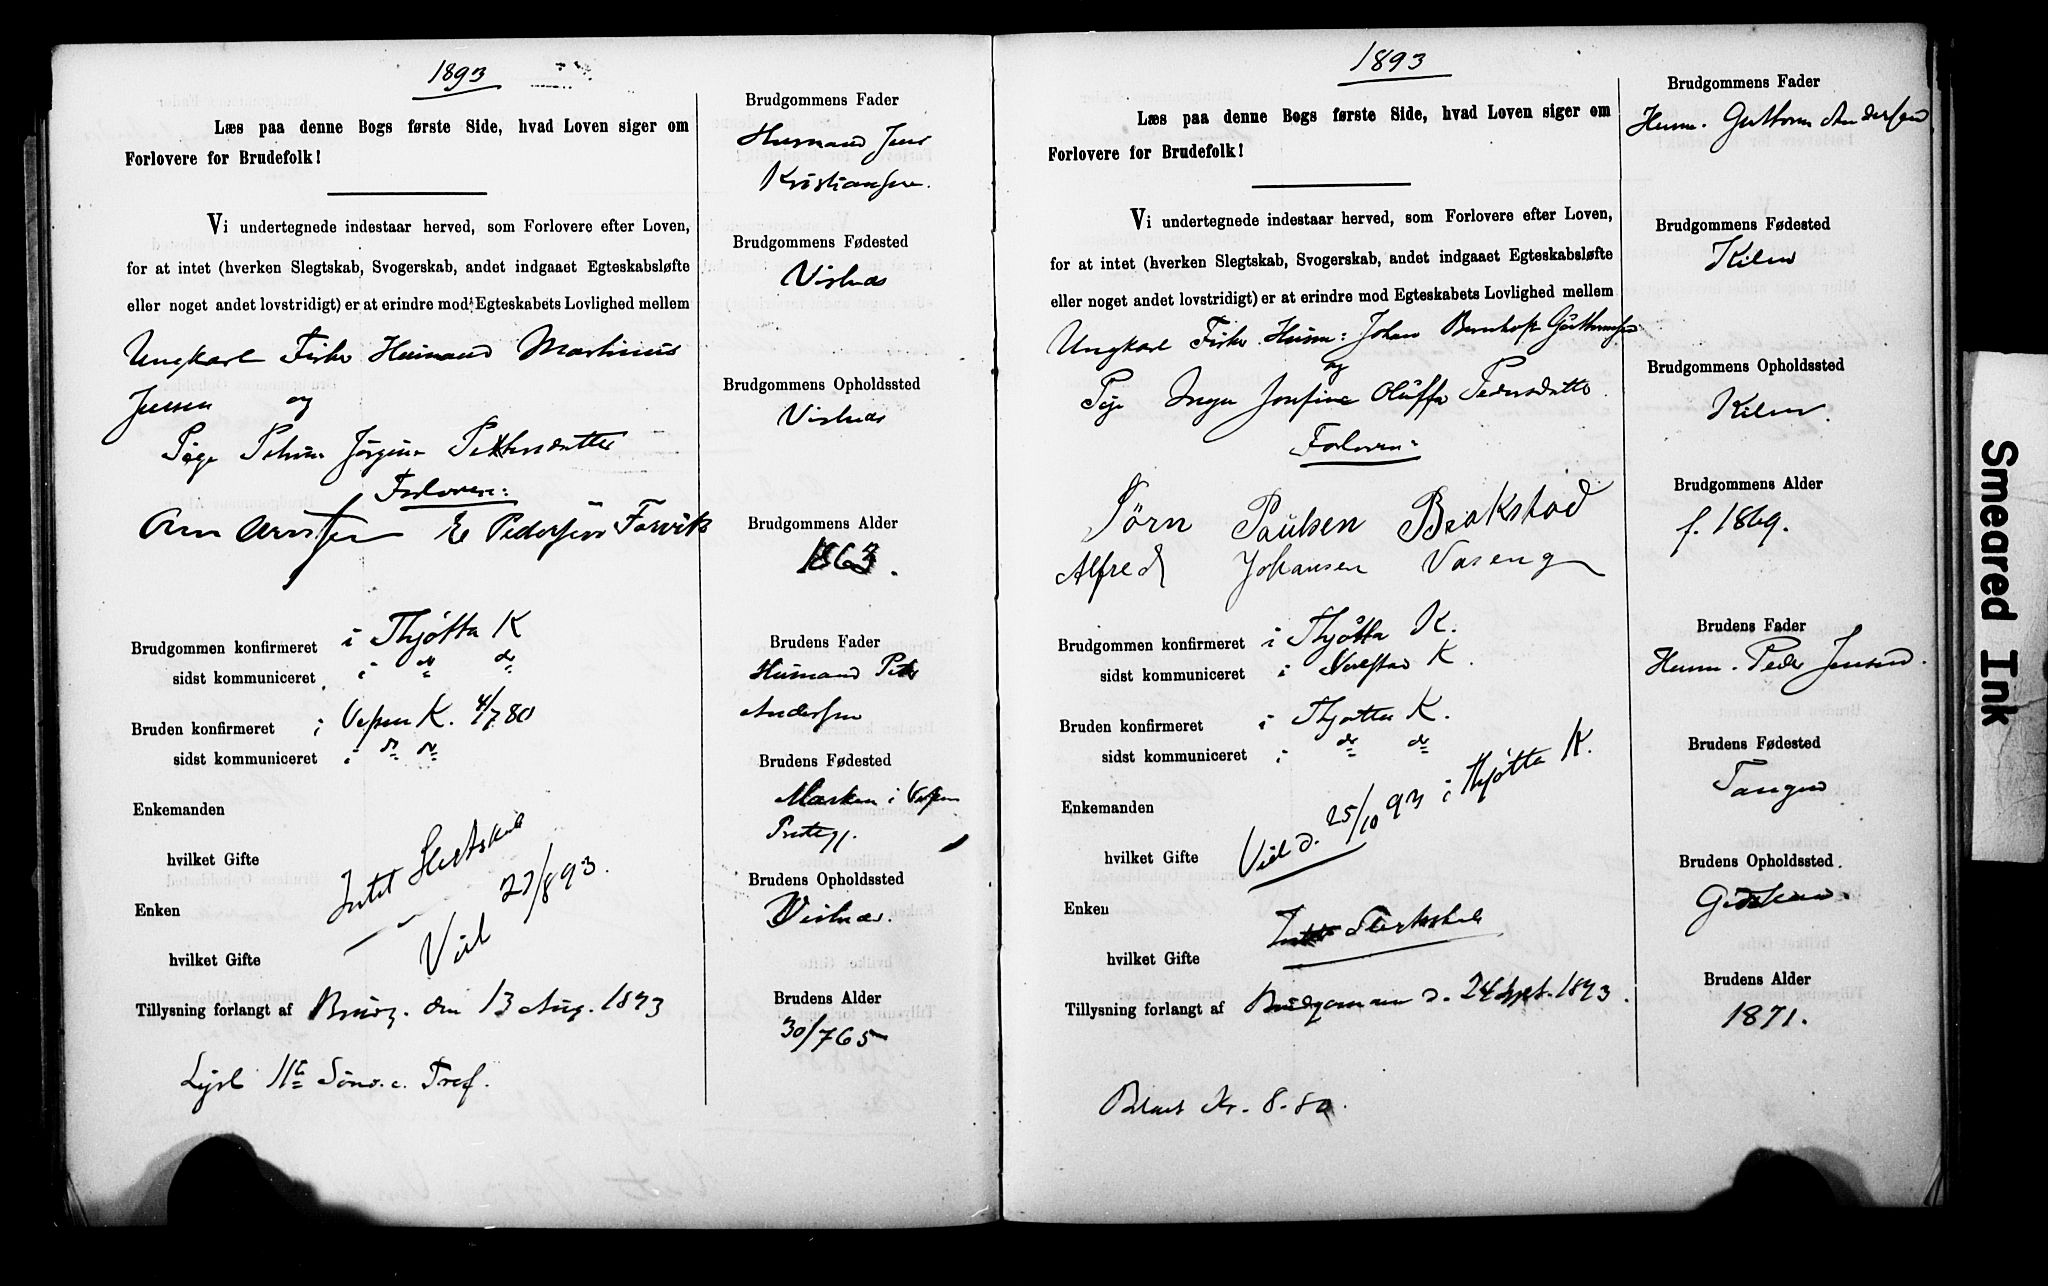 1893
Læs paa denne Bogs første Side, hvad Loven siger om
Forlovere for Brudefolk!
Vi undertegnede indestaar herved, som Forlovere efter Loven,
for at intet (hverken Slegtskab, Svogerskab, andet indgaaet Egteskabsløfte
eller noget andet lovstridigt) er at erindre mod Egteskabets Lovlighed mellem
Ungkarl Fisker Husmand Martinus
Jensen og
Pige Jørgine
Forlovere:
E Pedersen Forvik
Brudgommen konfirmeret i Thjøtta K
sidst kommuniceret i do do
Bruden konfirmeret i Vefsen K. 4/7 80
sidst kommuniceret i do do
Enkemanden
hvilket Gifte
Intet Slegtskab
Enken
Viel 27/8 93.
hvilket Gifte
Tillysning forlangt af Brudg. den 13 Aug. 1893
Lyst 11te Sønd. e. Tref.
Brudgommens Fader
Husmand Jens
Kristiansen.
Brudgommens Fødested
Visthus
Brudgommens Opholdssted
Visthus
Brudgommens Alder
1863.
Brudens Fader
Husmand Peter
Andersen
Brudens Fødested
i Vefsen
Prstegj.
Brudens Opholdssted
Visthus.
Brudens Alder
30/7 65
1893
Læs paa denne Bogs første Side, hvad Loven siger om
Forlovere for Brudefolk!
Vi undertegnede indestaar herved, som Forlovere efter Loven,
for at intet (hverken Slegtskab, Svogerskab, andet indgaaet Egteskabsløfte
eller noget andet lovstridigt) er at erindre mod Egteskabets Lovlighed mellem
Ungkarl Fisker Husm: Johan Bernhof Guthormsen
og
Pige Inga Josefine Oluffa Pedersdatter.
Forlovere:
Sørn Paulsen Brakstad
Alfred Johansen Vaseng
Brudgommen konfirmeret i Thjøtta K.
sidst kommuniceret i K.
Bruden konfirmeret i Thjøtta K.
sidst kommuniceret i do do
Enkemanden
hvilket Gifte
Viel d. 25/10 93 i Thjøtta K.
Enken
Intet Slegtskab
hvilket Gifte
Tillysning forlangt af Brudgommen d. 24 Sept. 1893.
Betalt Kr. 8.80.
Brudgommens Fader
Husm. Guthorm Andersen
Brudgommens Fødested
Kilen
Brudgommens Opholdssted
Kilen
Brudgommens Alder
f. 1869.
Brudens Fader
Husm. Peder Jensen.
Brudens Fødested
Tangen
Brudens Opholdssted.
Brudens Alder
1871.
Smeared Ink